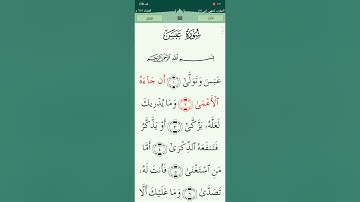 سُورَةُ عَبَسَ
بِسْمِ اللَّهِ الرَّحْمَٰنِ الرَّحِيمِ
عَبَسَ وَتَوَلَّىٰٓ ١ أَن جَآءَهُ
ٱلْأَعْمَىٰ ٢ وَمَا يُدْرِيكَ
لَعَلَّهُۥ يَزَّكَّىٰٓ ٣ أَوْ يَذَّكَّرُ
فَتَنفَعَهُ ٱلذِّكْرَىٰٓ ٤ أَمَّا
مَنِ ٱسْتَغْنَىٰ ٥ فَأَنتَ لَهُۥ
تَصَدَّىٰ ٦ وَمَا عَلَيْكَ أَلَّا